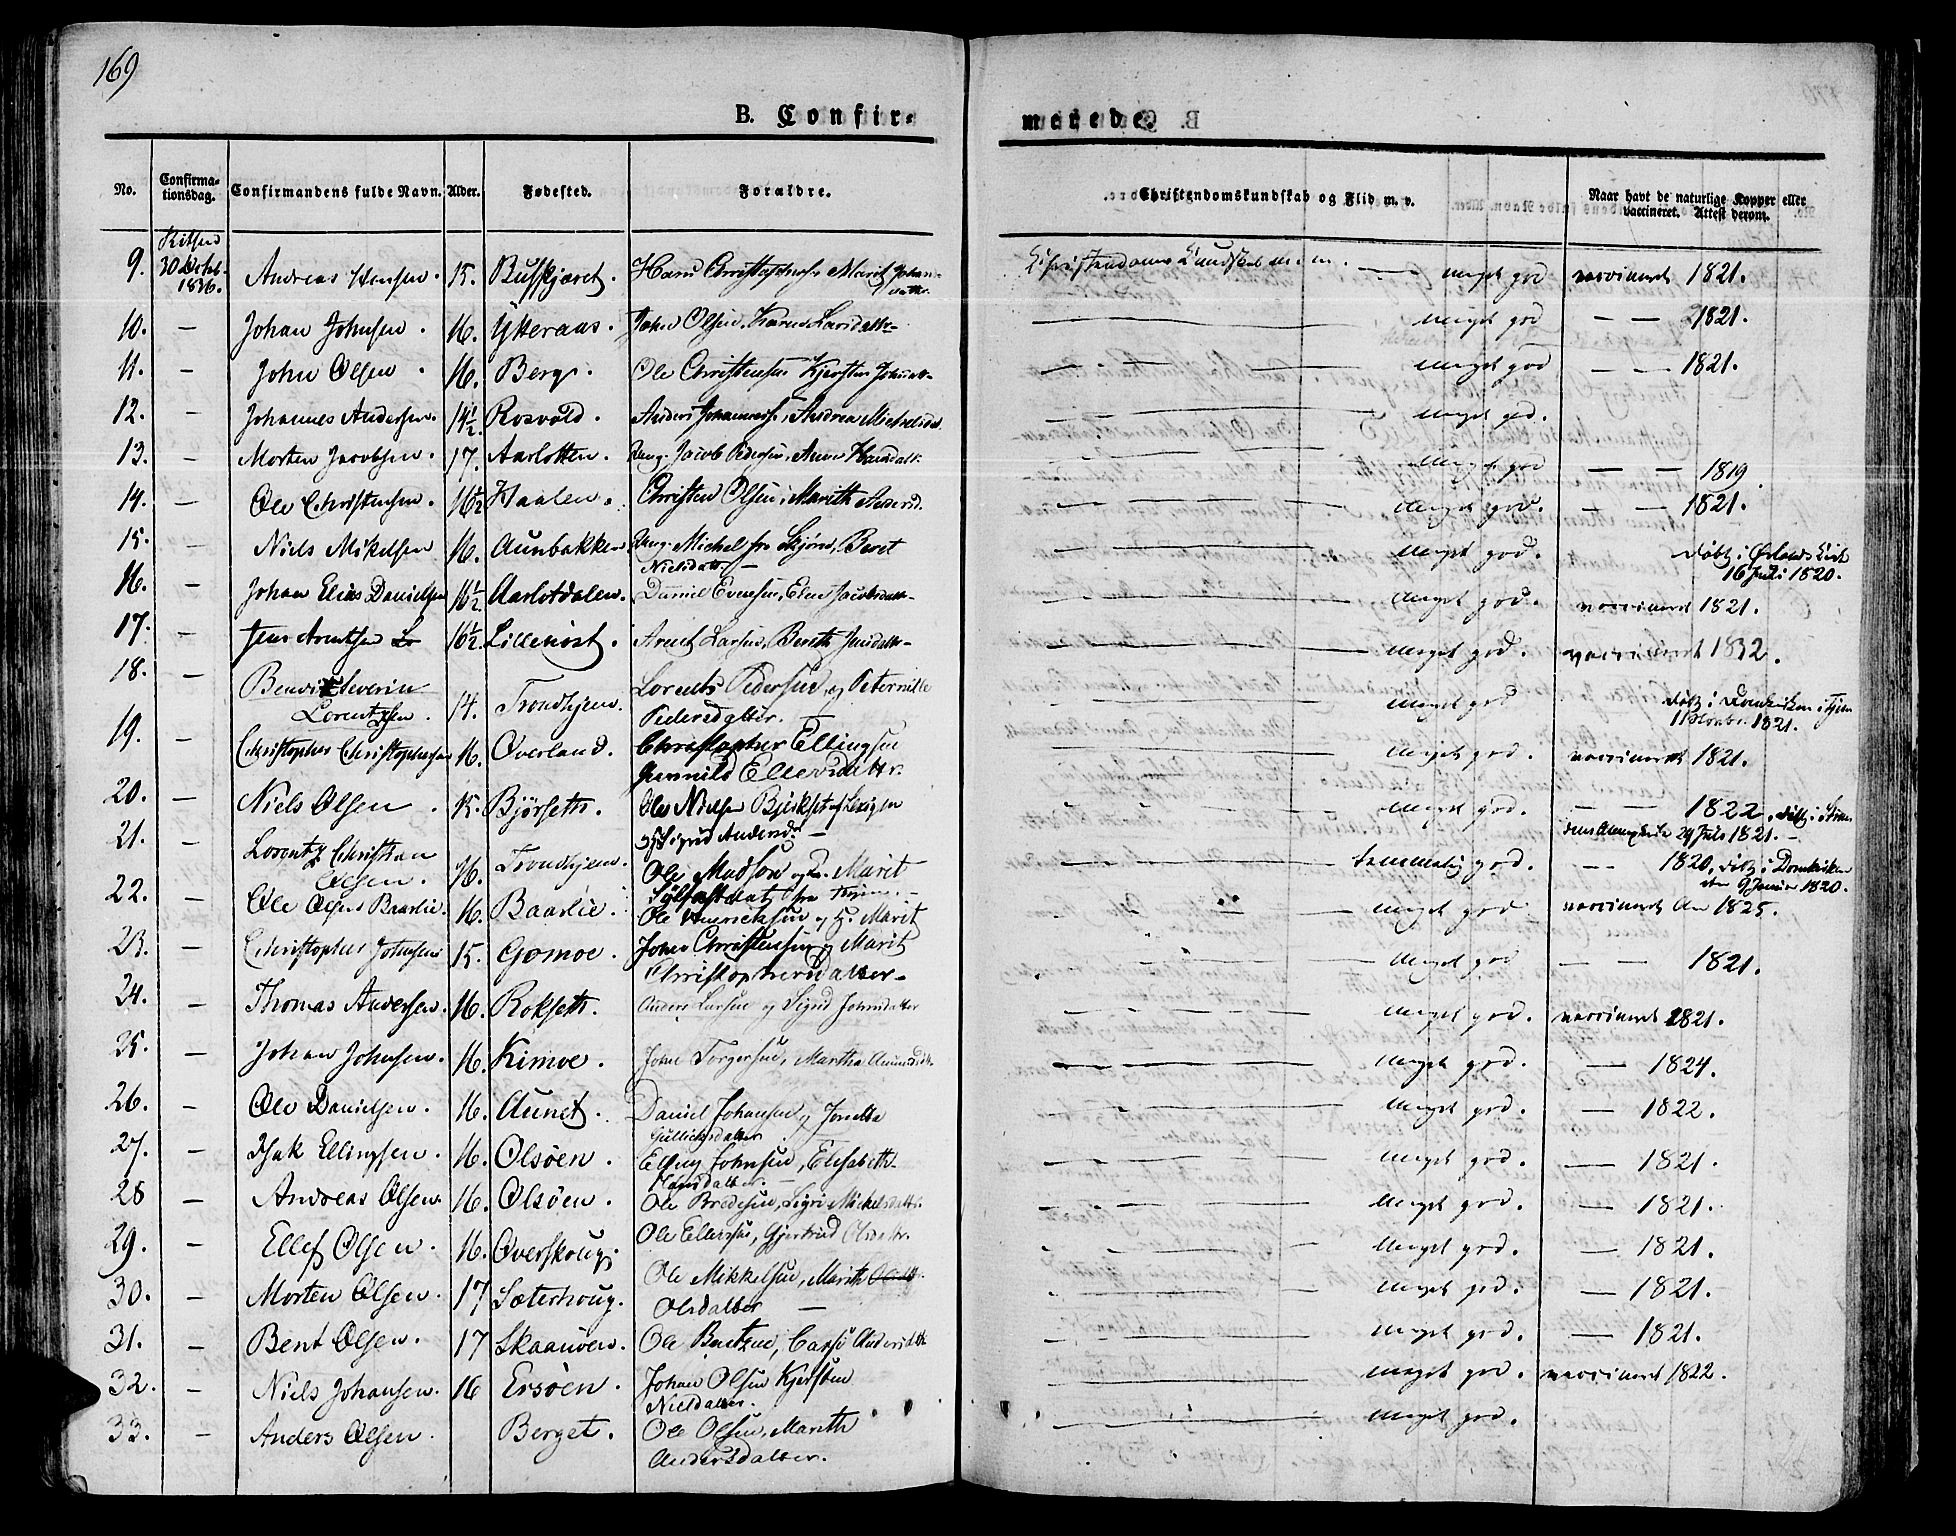 169
B. Confir-
merede.
No. Confirma-tionsdag. Confirmandens fulde Navn. Alder. Fødested. Forældre. Christendomskundskab og Flid m. v. Naar havt de naturlige Kopper eller vaccineret. Attest derom.
9. 30 Octob. 1836. Andreas Hansen 15. Buskjæret. Hans Christophers. Marit Johansdatter Christendoms Kundskab m. m. — meget god vaccineret 1821.
10. — Johan Johnsen. 16. Ytteraas. John Olsen, Karen Larsdattr — meget god — — 1821.
11. — John Olsen. 16. Berg. Ole Christensen Kjersten — meget god — — 1821.
12. — Johannes Andersen. 14½. Rosvold. Anders Johanness., Andrea — meget god.
13. — Morten Jacobsen. 17. Aarlotten. Ung. Jacob Pedersen, Anne Hansdattr. — meget god — — 1819
14. — Ole Christensen. 16½ Haalen. Christen Olsen, Marith Andersd. — meget god. — — 1821.
15. — Niels Mikelsen 16. Aunbakken. Ung. Michel fra Skjørn, Beret Nielsdatt. — — meget god. døbt i Ørlands Kirke 16 Juli 1820.
16. — Johan Elias Danielsen 16½ Aarlotdalen. Daniel Evensen, Elen Jacobsdattr — meget god. vaccineret 1821.
17. — Jens Arentsen 16½. Lillemost. Arent Larsen, Bereth Jensdattr — meget god. vaccineret 1832.
18. — Severin Lorentzsen. 14. Trondhjem. Lorents Pedersen, og Peternille Pedersdatter. — — meget god døbt i Domkirken i Tjem 1821.
19. — Christopher Christophersen 16. Overland. Christopher Ellingsen Gunnild Ellevsdattr. — meget god. vaccineret 1821.
20. — Niels Olsen. 15. Bjørseth. Ole Nielsen og Sigrid Andersd. — — meget god. — — 1822, døbt i 29 Juli 1821. —
21. — Lorentz Christian Olsen. 16. Trondhjem. Ole Madsen og Marit fra — temmelig god. — — 1820, døbt i Domkirken den 9 Januar 1820.
22. — Ole Olsen Baarlie. 16. Baarlie. Ole Henricksen og H. Marit — meget god vaccineret 1825.
23. — Christopher Johnsen 15. Gomoe. John Christensen og Marit Christophersdatter — — meget god — — 1821.
24. — Thomas Andersen. 16. Rokseth. Anders Larsen og Sigrid Johnsdatter — meget god. vaccineret 1821.
25. — Johan Johnsen. 16. Kimoe. John Torgersen, Martha Amundsdtr. — meget god. — 1824.
26. — Ole Danielsen. 16. Aunet. Daniel Johansen og Jonetta Gullichsdatter — meget god. — 1822.
27. — Isak Ellingsen. 16. Olsøen. Elling Johnsen, Elisabeth — meget god. — 1821.
28 — Andreas Olsen. 16. Olsøen. Ole Bredesen, Sigri Mickelsdattr. — meget god. — 1821.
29. — Ellef Olsen. 16. Overskoug. Ole Ellefsen, Gjertrud Olsdtr. — meget god. — 1821.
30. — Morten Olsen. 17 Sæterhoug. Ole Mikkelsen, Marith Olsdatter — — meget god. — 1821.
31. — Bent Olsen. 17 Skaanøen. Ole Bentsen, Andersdtr — meget god. — 1821.
32. — Niels Johansen. 16 Ersøen. Johan Olsen Kjersten Nielsdatter. — meget god. vaccineret 1822.
33. — Anders Olsen. Berget. Ole Olsen, Marith Andersdatter. — meget god.